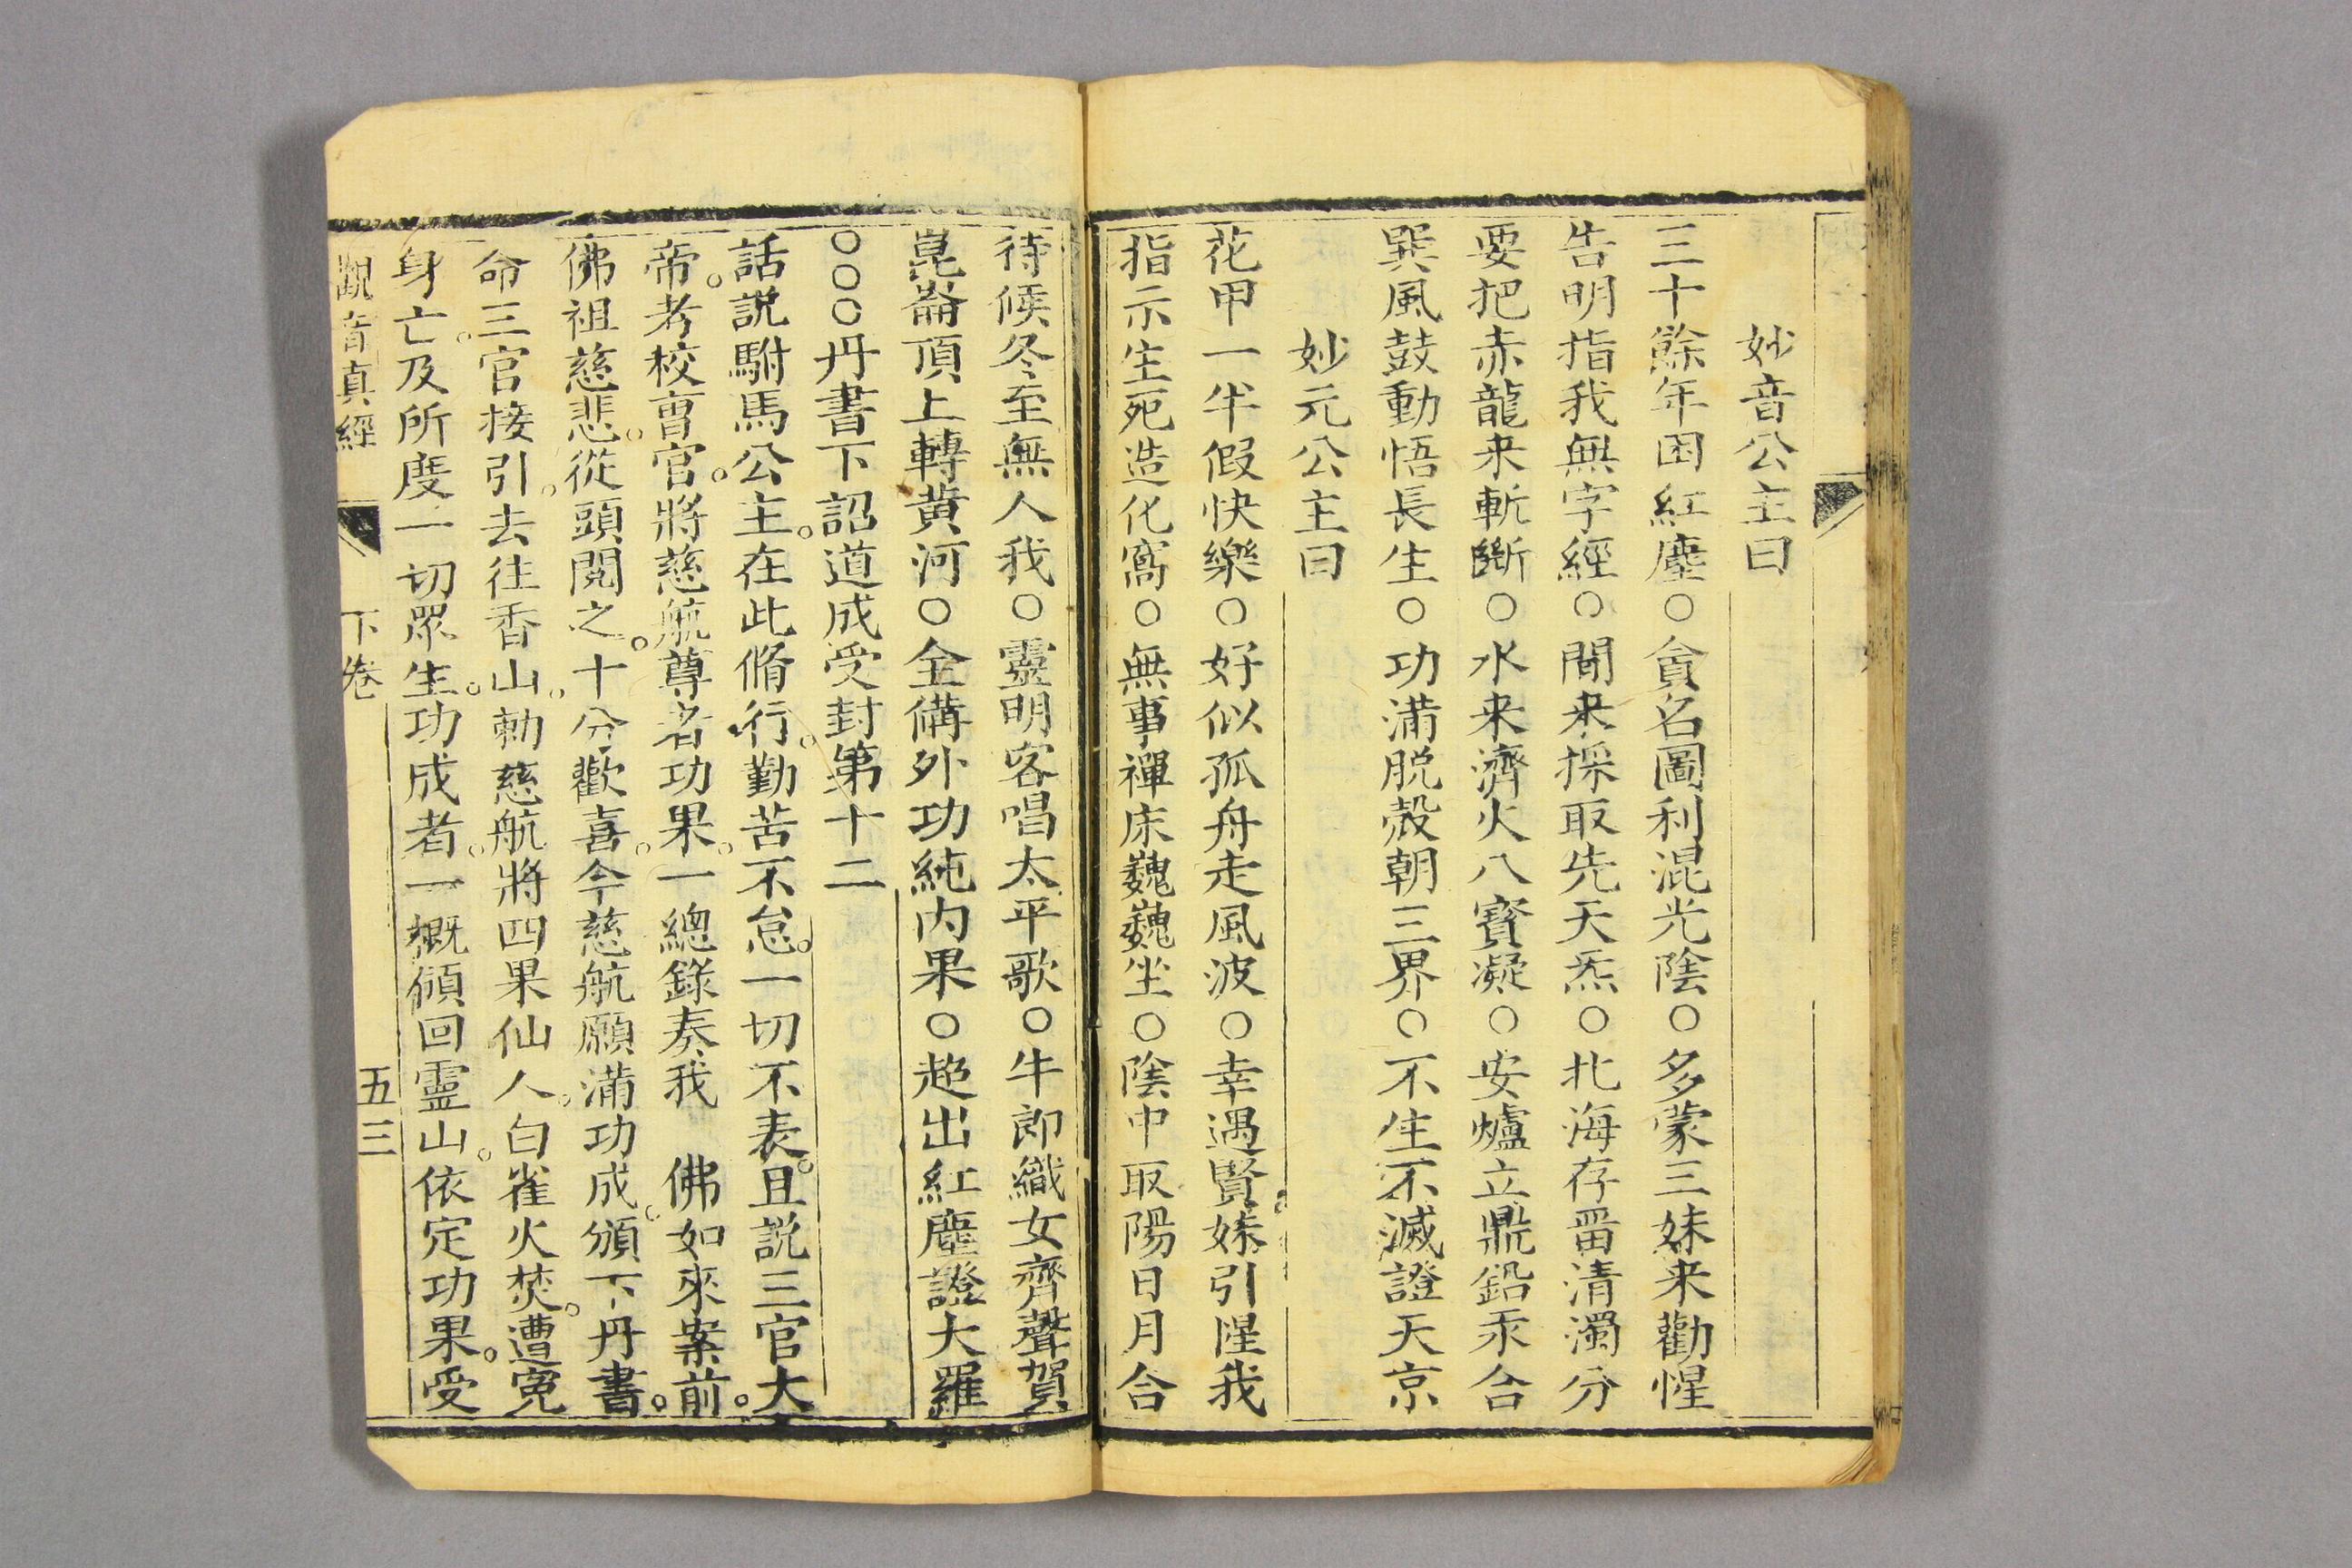 妙音公主曰
三十餘年困紅塵○貪名圖利混光陰○多蒙三妹来勸惺
告明指我無字經○閒来採取先天炁○北海存畱清濁分
要把赤龍来斬斷○水来濟火八寳凝○安爐立鼎鉛汞合
巽風鼓動悟長生○功滿脱殻朝三界○不生不滅證天京
妙元公主曰
花甲一半假快樂○好似孤舟走風波○幸遇賢妹引惺我
指示生死造化窩○無事禪床巍巍坐○陰中取陽日月合
待候冬至無人我○靈明客唱太平歌○牛郎織女齊聲賀
崑崙頂上轉黄河○全備外功純内果○超出紅塵證大羅
○○○丹書下詔道成受封第十二
話説駙馬公主。在此脩行。勤苦不怠。一切不表。且説三官大
帝。考校曺官。將慈航尊者功果。一總錄奏我 佛如來案前。
佛祖慈悲。從頭閱之。十分歡喜。今慈航願滿功成。頒下丹書。
命三官接引。去往香山。勅慈航將四果仙人。白雀火焚。遭冤
身亡。及所度一切眾生。功成者。一概傾回靈山。依定功果。受
觀音真經 下卷 五三